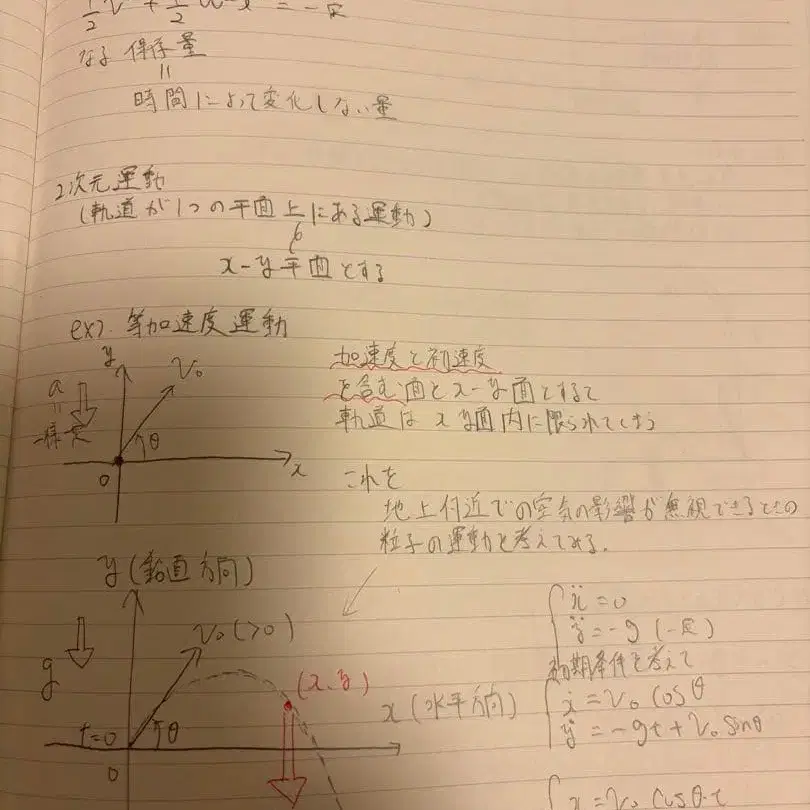 1/2 v² + 1/2 ω²x² = 一定
なる 保存量
||
時間によって変化しない量
2次元運動
(軌道が1つの平面上にある運動)
x-y平面とする
ex). 等加速度運動
y
v₀
a
||
一定
θ
0
x
加速度と初速度
を含む面をx-y面とすると
軌道はxy面内に限られてしまう
これを
地上付近での空気の影響が無視できるときの
粒子の運動を考えてみる.
y (鉛直方向)
v₀ (>0)
g
(x, y)
x (水平方向)
t=0
θ
0
ẍ = 0
ÿ = -g (一定)
初期条件を考えて
ẋ = v₀ cosθ
ẏ = -gt + v₀ sinθ
x = v₀ cosθ·t